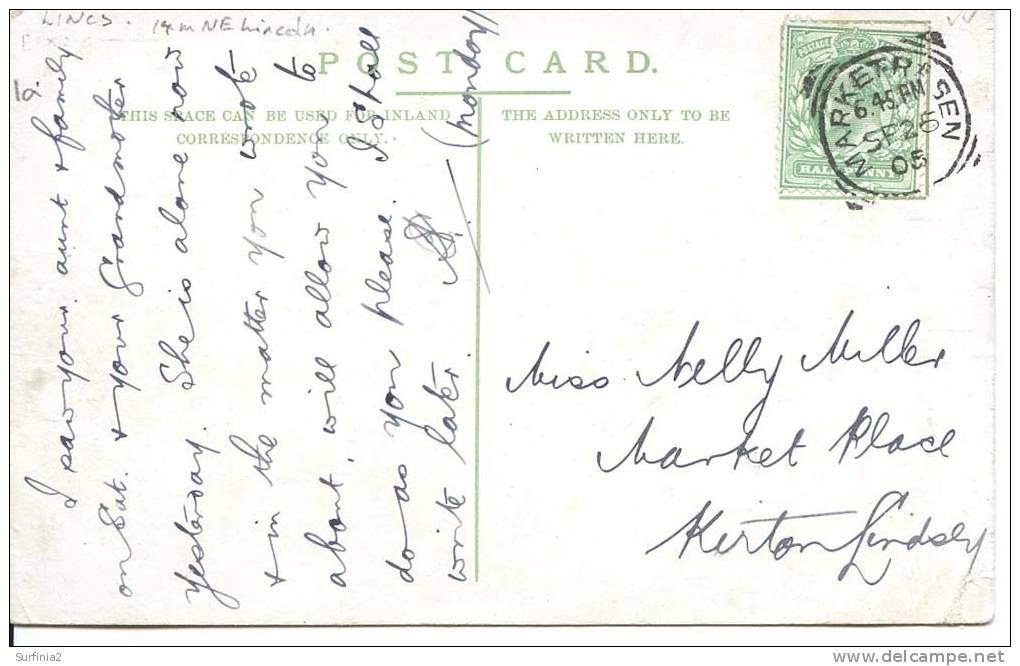 LINCS.
14 m NE Lincoln.
1d
POST CARD.
THIS SPACE CAN BE USED FOR INLAND
CORRESPONDENCE ONLY.
THE ADDRESS ONLY TO BE
WRITTEN HERE.
POSTAGE
HALFPENNY
MARKET RASEN
6.45 PM
SP 25
05
I saw your aunt & family
on Sat. & your Grandmother
yesterday. She is alone now
& in the matter you wrote
about, will allow you to
do as you please. I shall
write later.
(monday)
Miss Nelly Miller
Market Place
Kirton Lindsey
Surfinia2
www.delcampe.net